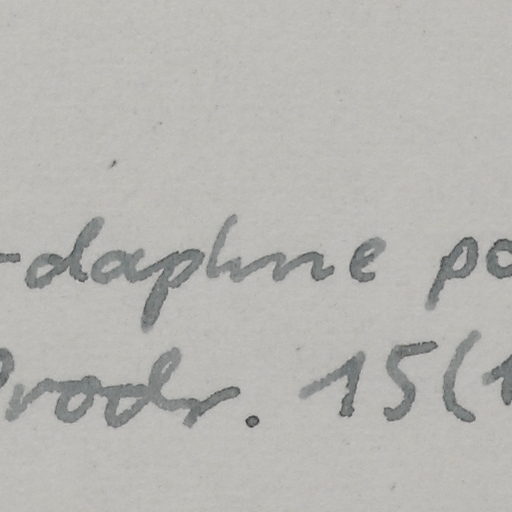 -daphne po
Prodr. 15(1